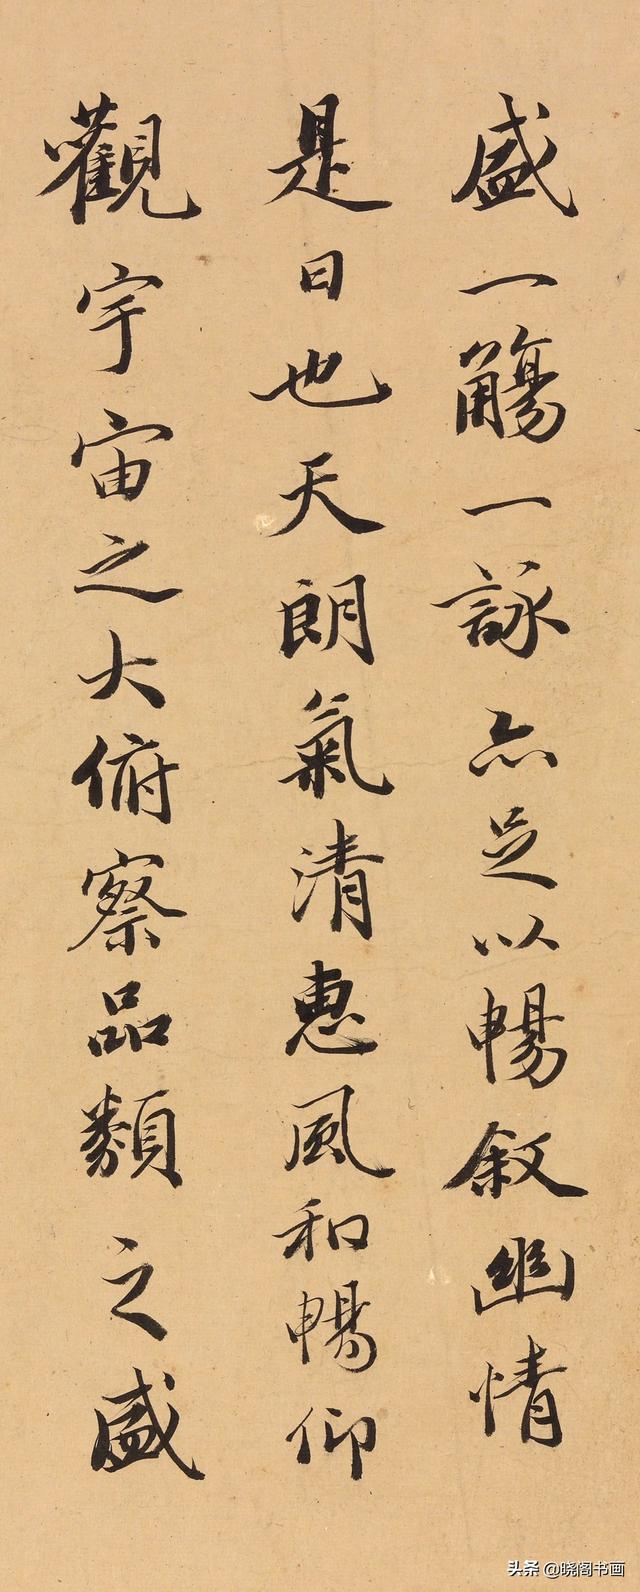 盛一觴一詠亦足以暢敘幽情
是日也天朗氣清惠風和暢仰
觀宇宙之大俯察品類之盛
头条 @晓阁书画